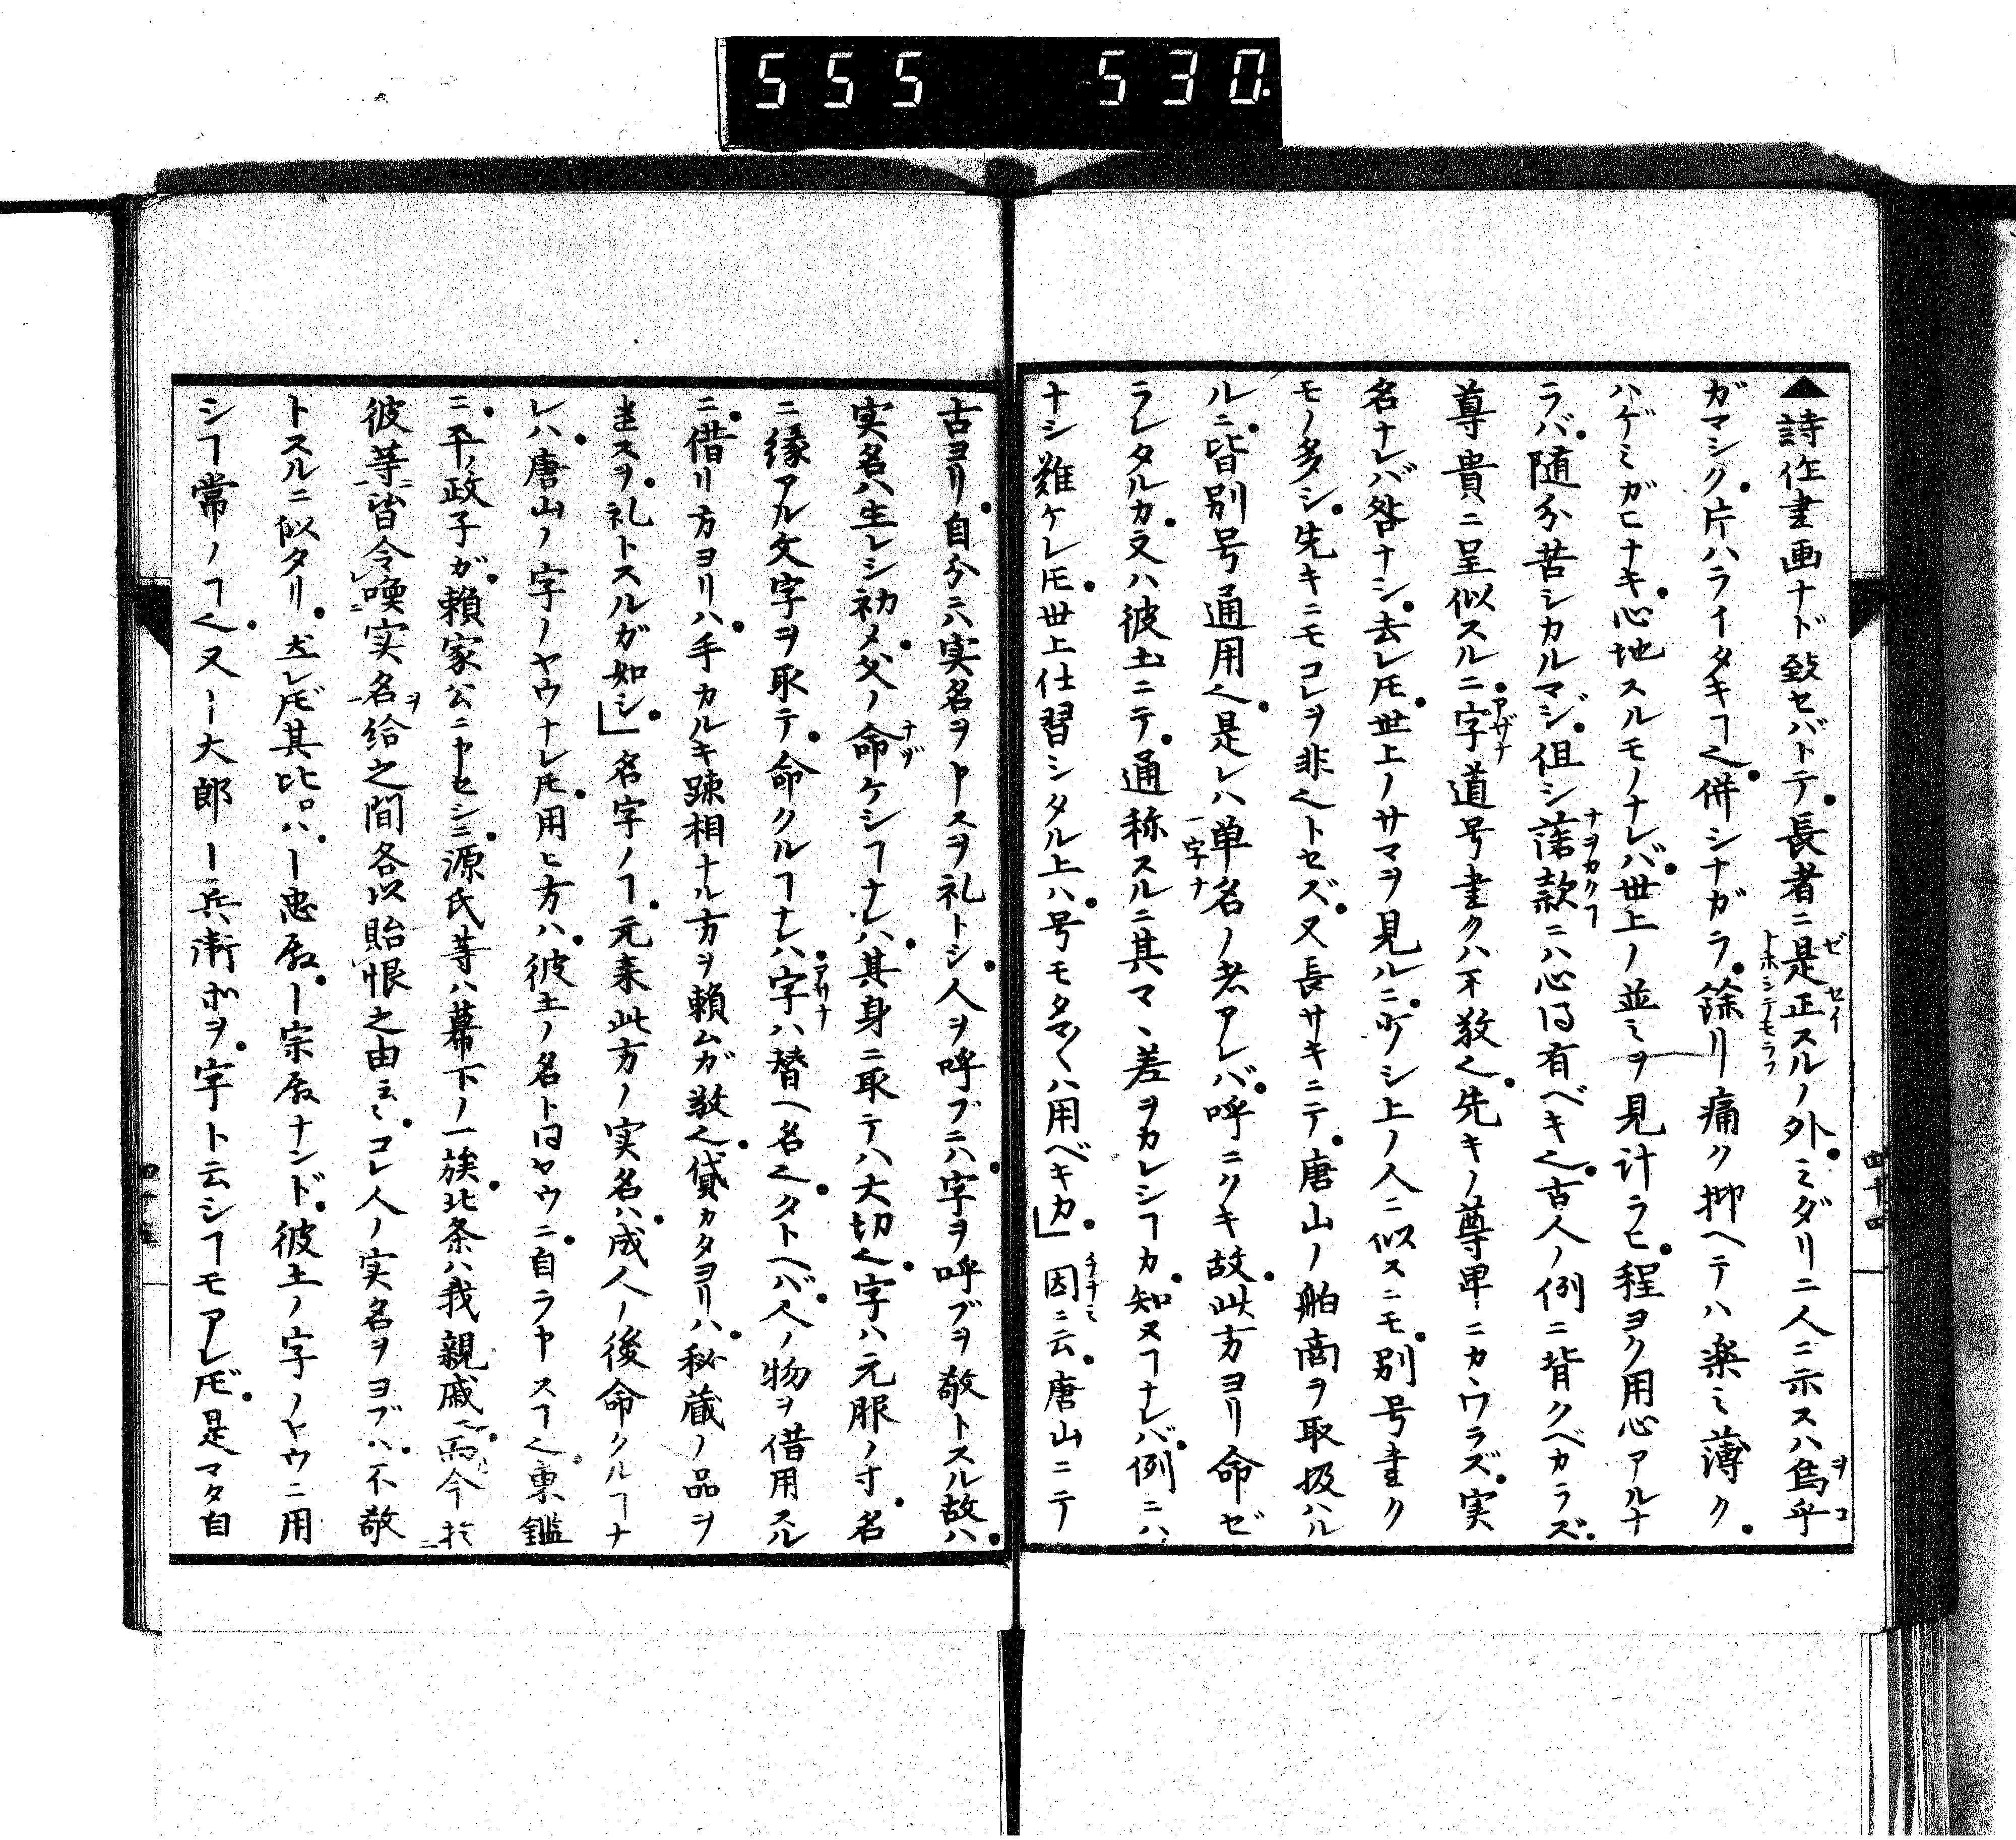 555 530.
▲詩作書画ナド致セバトテ。長者ニ是正スルノ外。ミダリニ人ニ示スハ烏乎
ガマシク。片ハライタキヿ也。併シナガラ。餘リ痛ク抑ヘテハ楽ミ薄ク。
ハゲミガヒナキ。心地スルモノナレバ。世上ノ並ミヲ見計ラヒ。程ヨク用心アルナ
ラバ。随分苦シカルマジ。但シ落款ニハ心得有ベキ也。古人ノ例ニ背クベカラズ。
尊貴ニ呈似スルニ。字道号書クハ不敬也。先キノ尊卑ニカヽワラズ。実
名ナレバ咎ナシ。去レ𪜈。世上ノサマヲ見ルニ。少シ上ノ人ニ似スニモ。別号書ク
モノ多シ。先キニモコレヲ非也トセズ。又長サキニテ。唐山ノ舶商ヲ取扱ハル
ルニ。皆別号通用也。是レハ単名ノ者アレバ。呼ニクキ故。此方ヨリ命ゼ
ラレタルカ。又ハ彼土ニテ。通称スルニ其マヽ差ヲカレシヿカ。知ヌヿナレバ。例ニハ
ナシ難ケレ𪜈。世上仕習シタル上ハ。号モタマ〱ハ用ベキカ。」因ニ云。唐山ニテ
古ヨリ。自分ニハ実名ヲ申スヲ礼トシ。人ヲ呼ブニハ。字ヲ呼ブヲ敬トスル故ハ。
実名ハ生レシ初メ。父ノ命ケシヿナレハ。其身ニ取テハ大切也。字ハ元服ノ寸。名
ニ縁アル文字ヲ取テ。命クルヿナレハ。字ハ替ヘ名也。タトヘバ。人ノ物ヲ借用スル
ニ。借リ方ヨリハ。手カルキ踈相ナル方ヲ頼ムガ敬也。貸カタヨリハ。秘蔵ノ品ヲ
進スヲ。礼トスルガ如シ。」名字ノヿ。元来此方ノ実名ハ。成人ノ後命クルヿナ
レハ。唐山ノ字ノヤウナレ𪜈。用ヒ方ハ。彼土ノ名ト同ヤウニ。自ラ申スヿ也。東鑑
ニ。平ノ政子ガ。頼家公ニ申セシニ。源氏等ハ幕下ノ一族。北条ハ我親戚也。而今於
彼等皆令喚実名給之間各以貽恨之由云〻。コレ人ノ実名ヲヨブハ。不敬
トスルニ似タリ。左レ𪜈其比ロハ。ー忠殿。ー宗殿ナンド。彼土ノ字ノヤウニ用
シヿ常ノヿ也。又ー太郎ー兵衛ホヲ。字ト云シヿモアレ𪜈。是マタ自
ゼ セイ
トホシテモラフ
ヲコ
ナヲカクヿ
アザナ
一字ナ
チナミ
ナヅ
アザナ
四十四